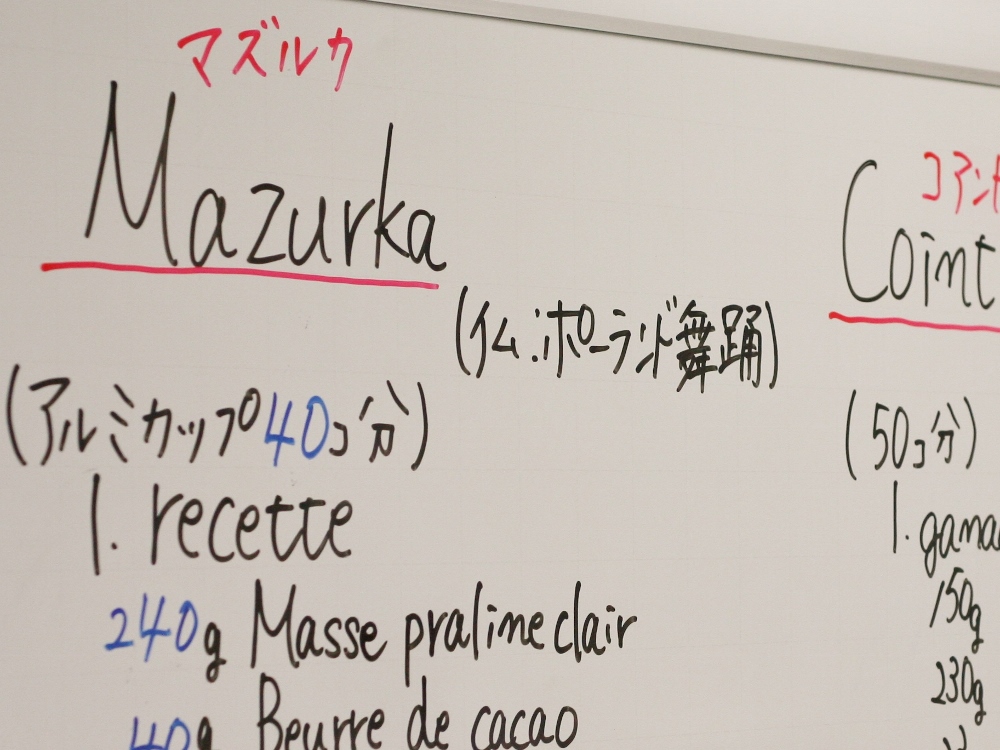 マズルカ
Mazurka
(イム.ポーランド舞踊)
(アルミカップ40コ分)
1. recette
240g Masse praline clair
40g Beurre de cacao
コアン
Coint
(50コ分)
1. gana
150g
230g